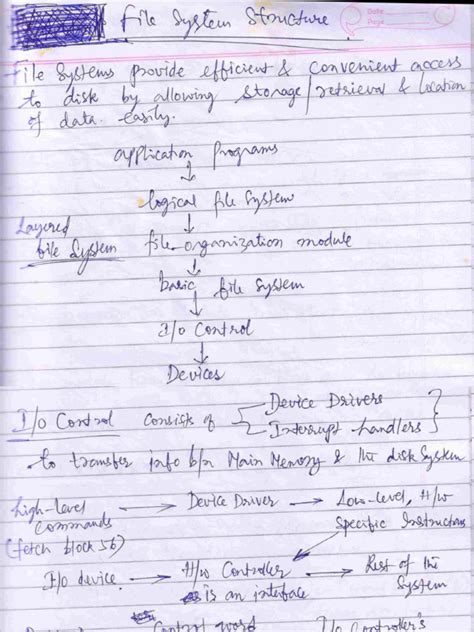 File System Structure.
Date
Page
File Systems provide efficient & convenient access
to disk by allowing storage/retrieval & location
of data easily.
application programs
↓
logical file System
↓
Layered
file System
file-organization module
↓
basic file System
↓
I/o Control
↓
Devices
I/o Control consists of Device Drivers
Interrupt handlers
to transfer info b/n Main Memory & the disk System
high-level
commands
(fetch block 56)
→ Device Driver → Low-level, H/w
Specific Instructors
I/o device → H/w Controller → Rest of the
System
is an interface
Control word I/o Controller's